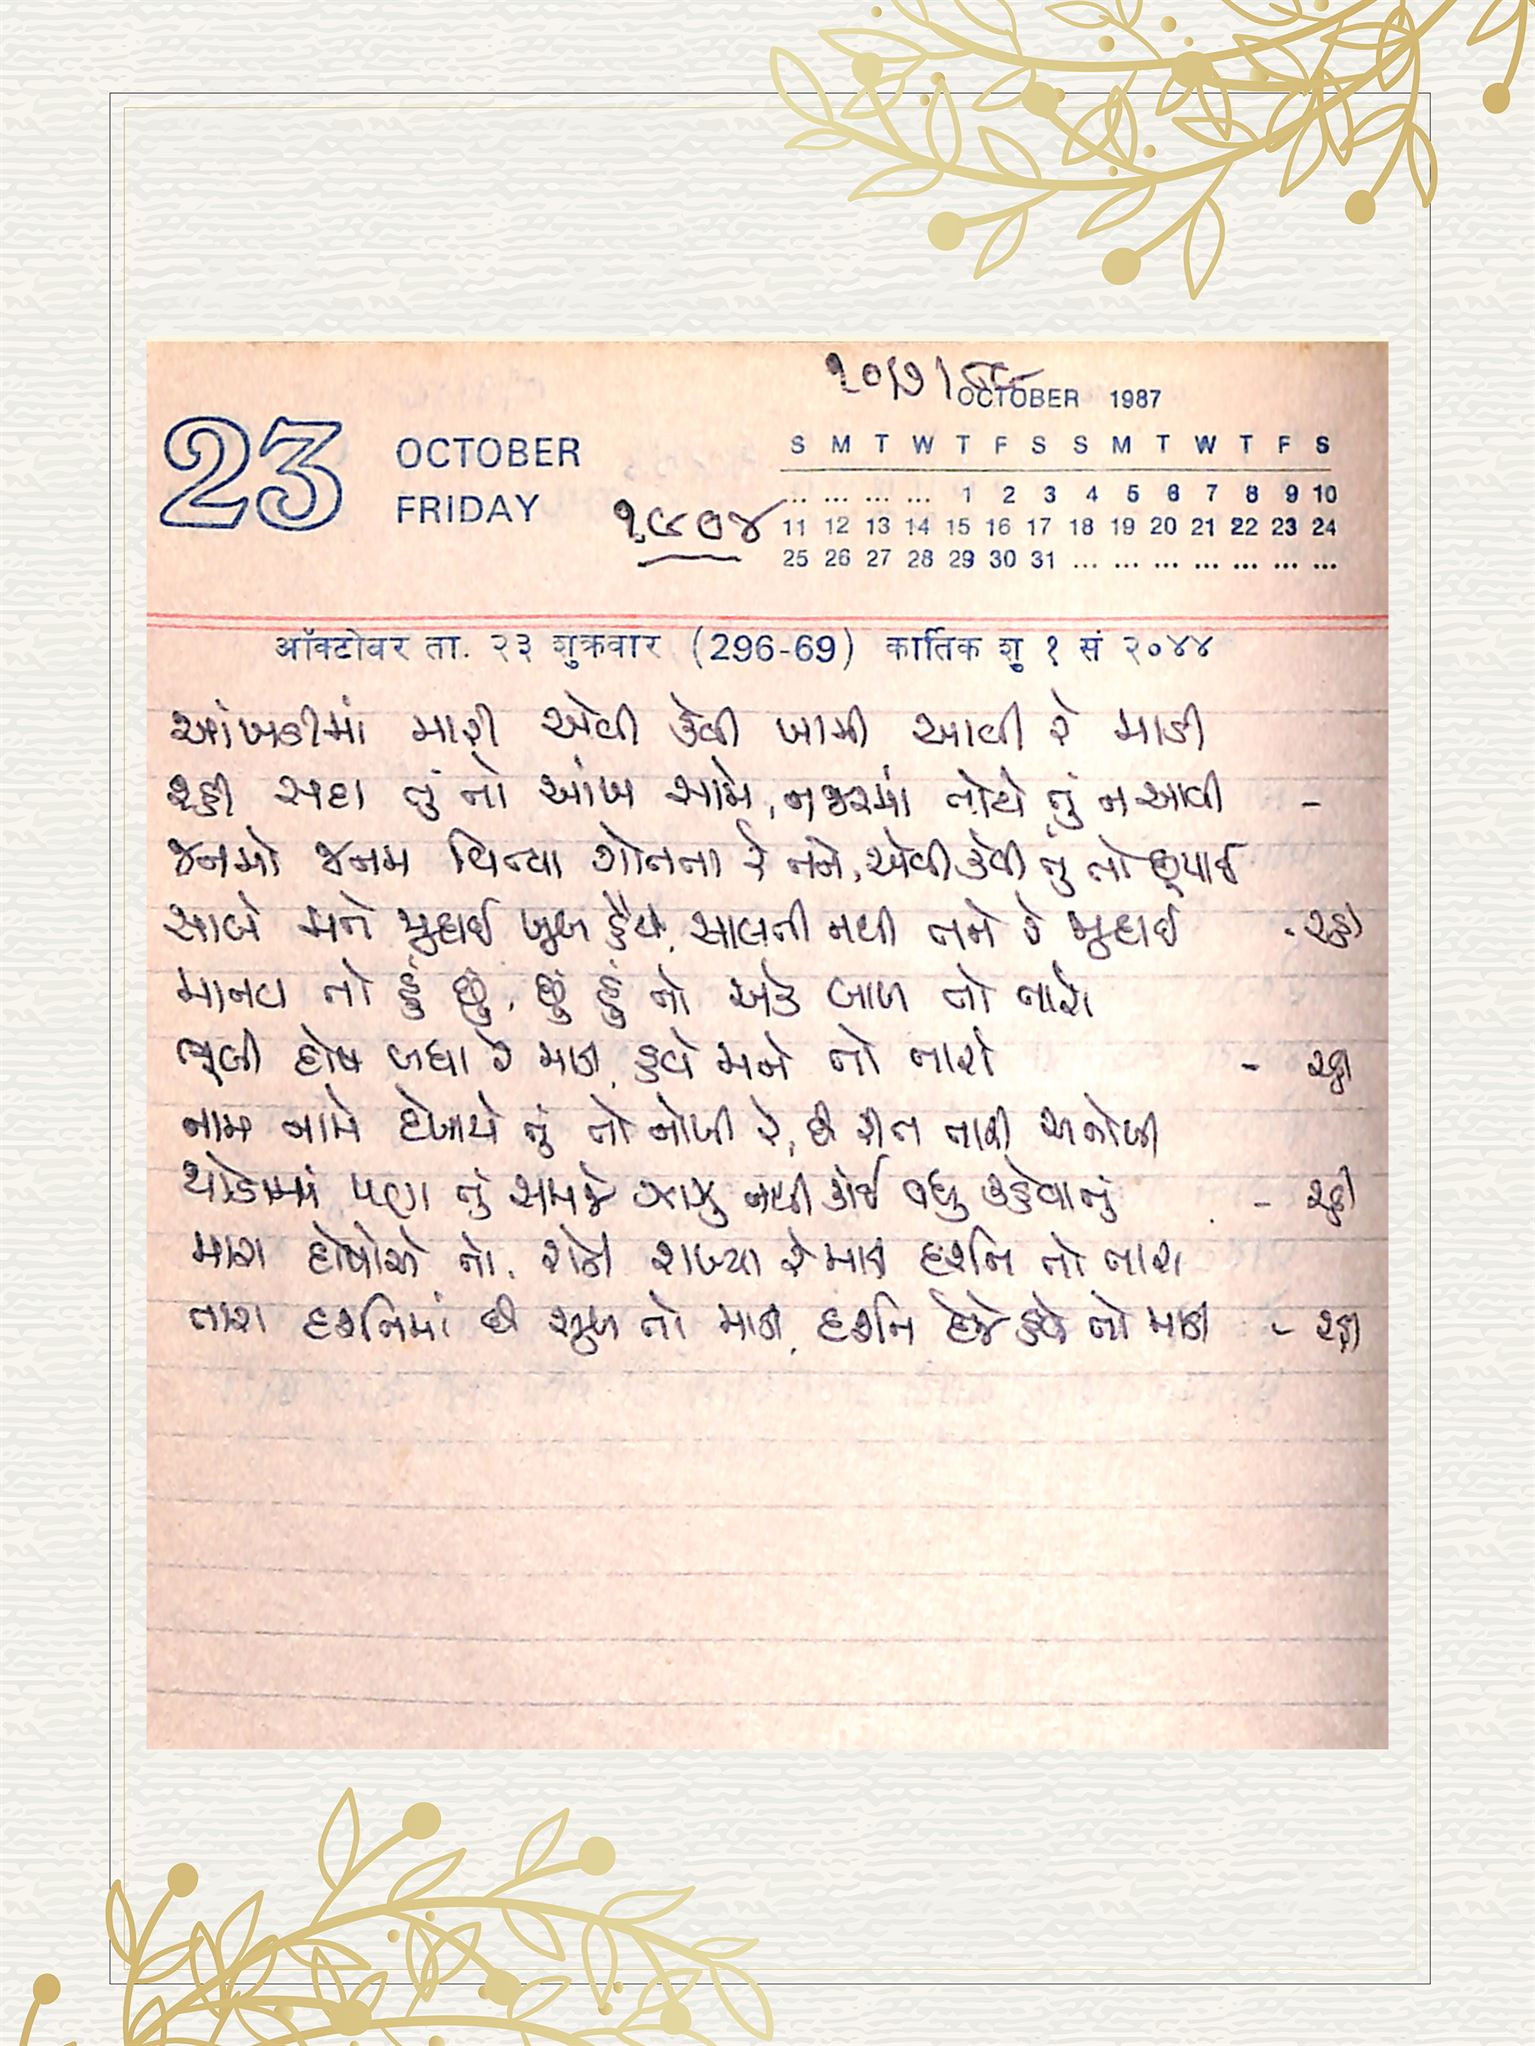 ૧૦/૭/૮૯
OCTOBER 1987
23 OCTOBER
FRIDAY
૧૯૦૪
S M T W T F S S M T W T F S
... ... ... ... 1 2 3 4 5 6 7 8 9 10
11 12 13 14 15 16 17 18 19 20 21 22 23 24
25 26 27 28 29 30 31 ... ... ... ... ... ... ...
ऑक्टोबर ता. २३ शुक्रवार (296-69) कार्तिक शु १ सं २०४४
આંખડીમાં મારી એવી કેવી ખામી આવી રે માડી
રહી સદા તું તો આંખ સામે, નજરમાં તોયે તું ન આવી -
જનમો જનમ વિત્યા ગોતતા રે તને, એવી કેવી તું તો છૂપાઈ
સાલે મને જુદાઈ ખુબ હૈયે, સાલતી નથી તને રે જુદાઈ - રહી
માનવ તો હું છું, છું હું તો એક બાળ તો તારો
ભૂલી દોષ બધા રે માડી, હવે મને તો તારો - રહી
નામ નામે દેખાયે તું તો નોખી રે, છે રીત તારી અનોખી
થોડામાં પણ તું સમજે ઝાઝુ નથી કોઈ વધુ કહેવાનું - રહી
મારા દોષોએ તો, રોકી રાખ્યા રે માડી દર્શન તો તારા
તારા દર્શનમાં છે સુખ તો માડી, દર્શન દેજે હવે તો માડી - રહી